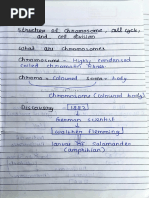 Structure of Chromosome, cell cycle,
and cell division
What are Chromosomes
Chromosome = Highly condensed
coiled chromatin fibres
chroma = coloured Soma = body
Chromosome (coloured body)
Discovery 1882
German scientist
Walther Flemming
larva of Salamander
(amphibian)